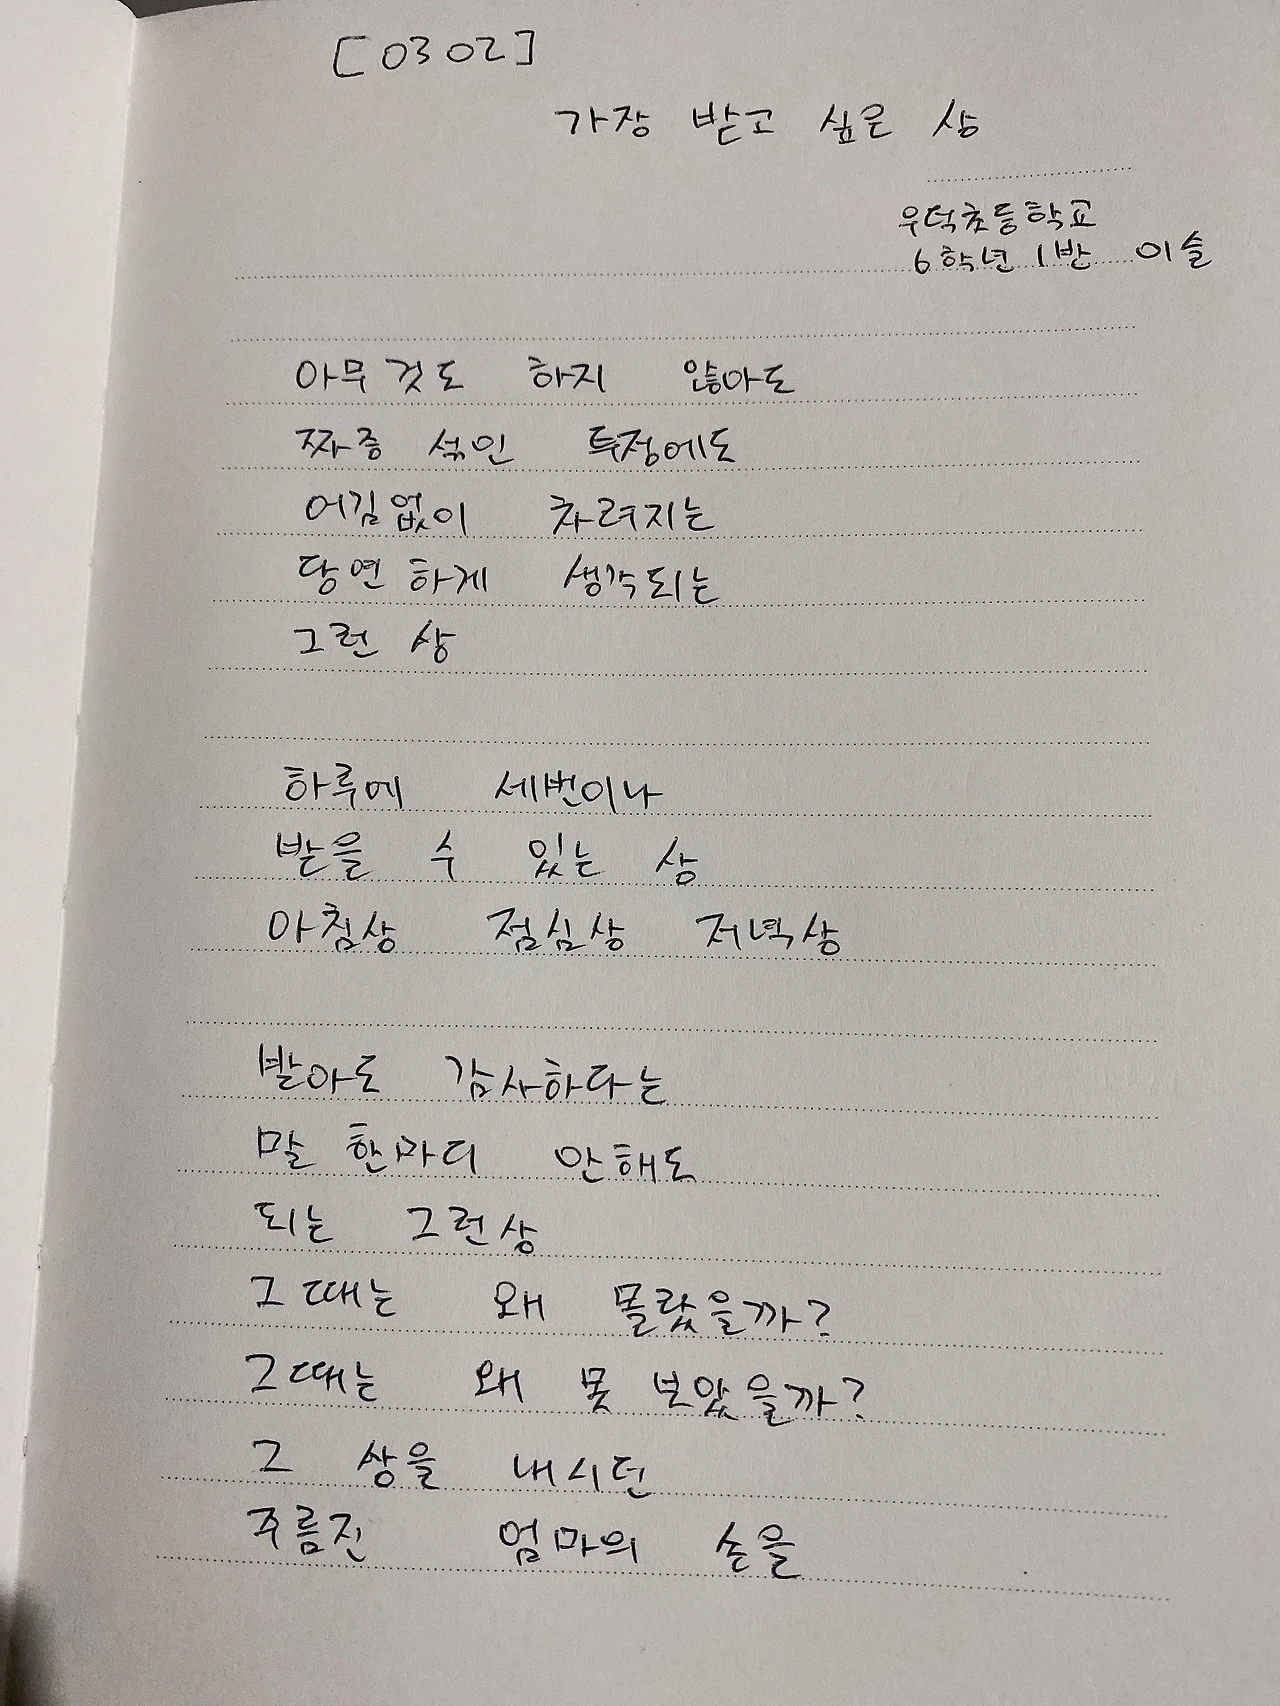 [0302]
가장 받고 싶은 상
우덕초등학교
6학년 1반 이슬
아무것도 하지 않아도
짜증 섞인 투정에도
어김없이 차려지는
당연하게 생각되는
그런 상
하루에 세번이나
받을 수 있는 상
아침상 점심상 저녁상
받아도 감사하다는
말 한마디 안해도
되는 그런상
그때는 왜 몰랐을까?
그때는 왜 못 보았을까?
그 상을 내시던
주름진 엄마의 손을